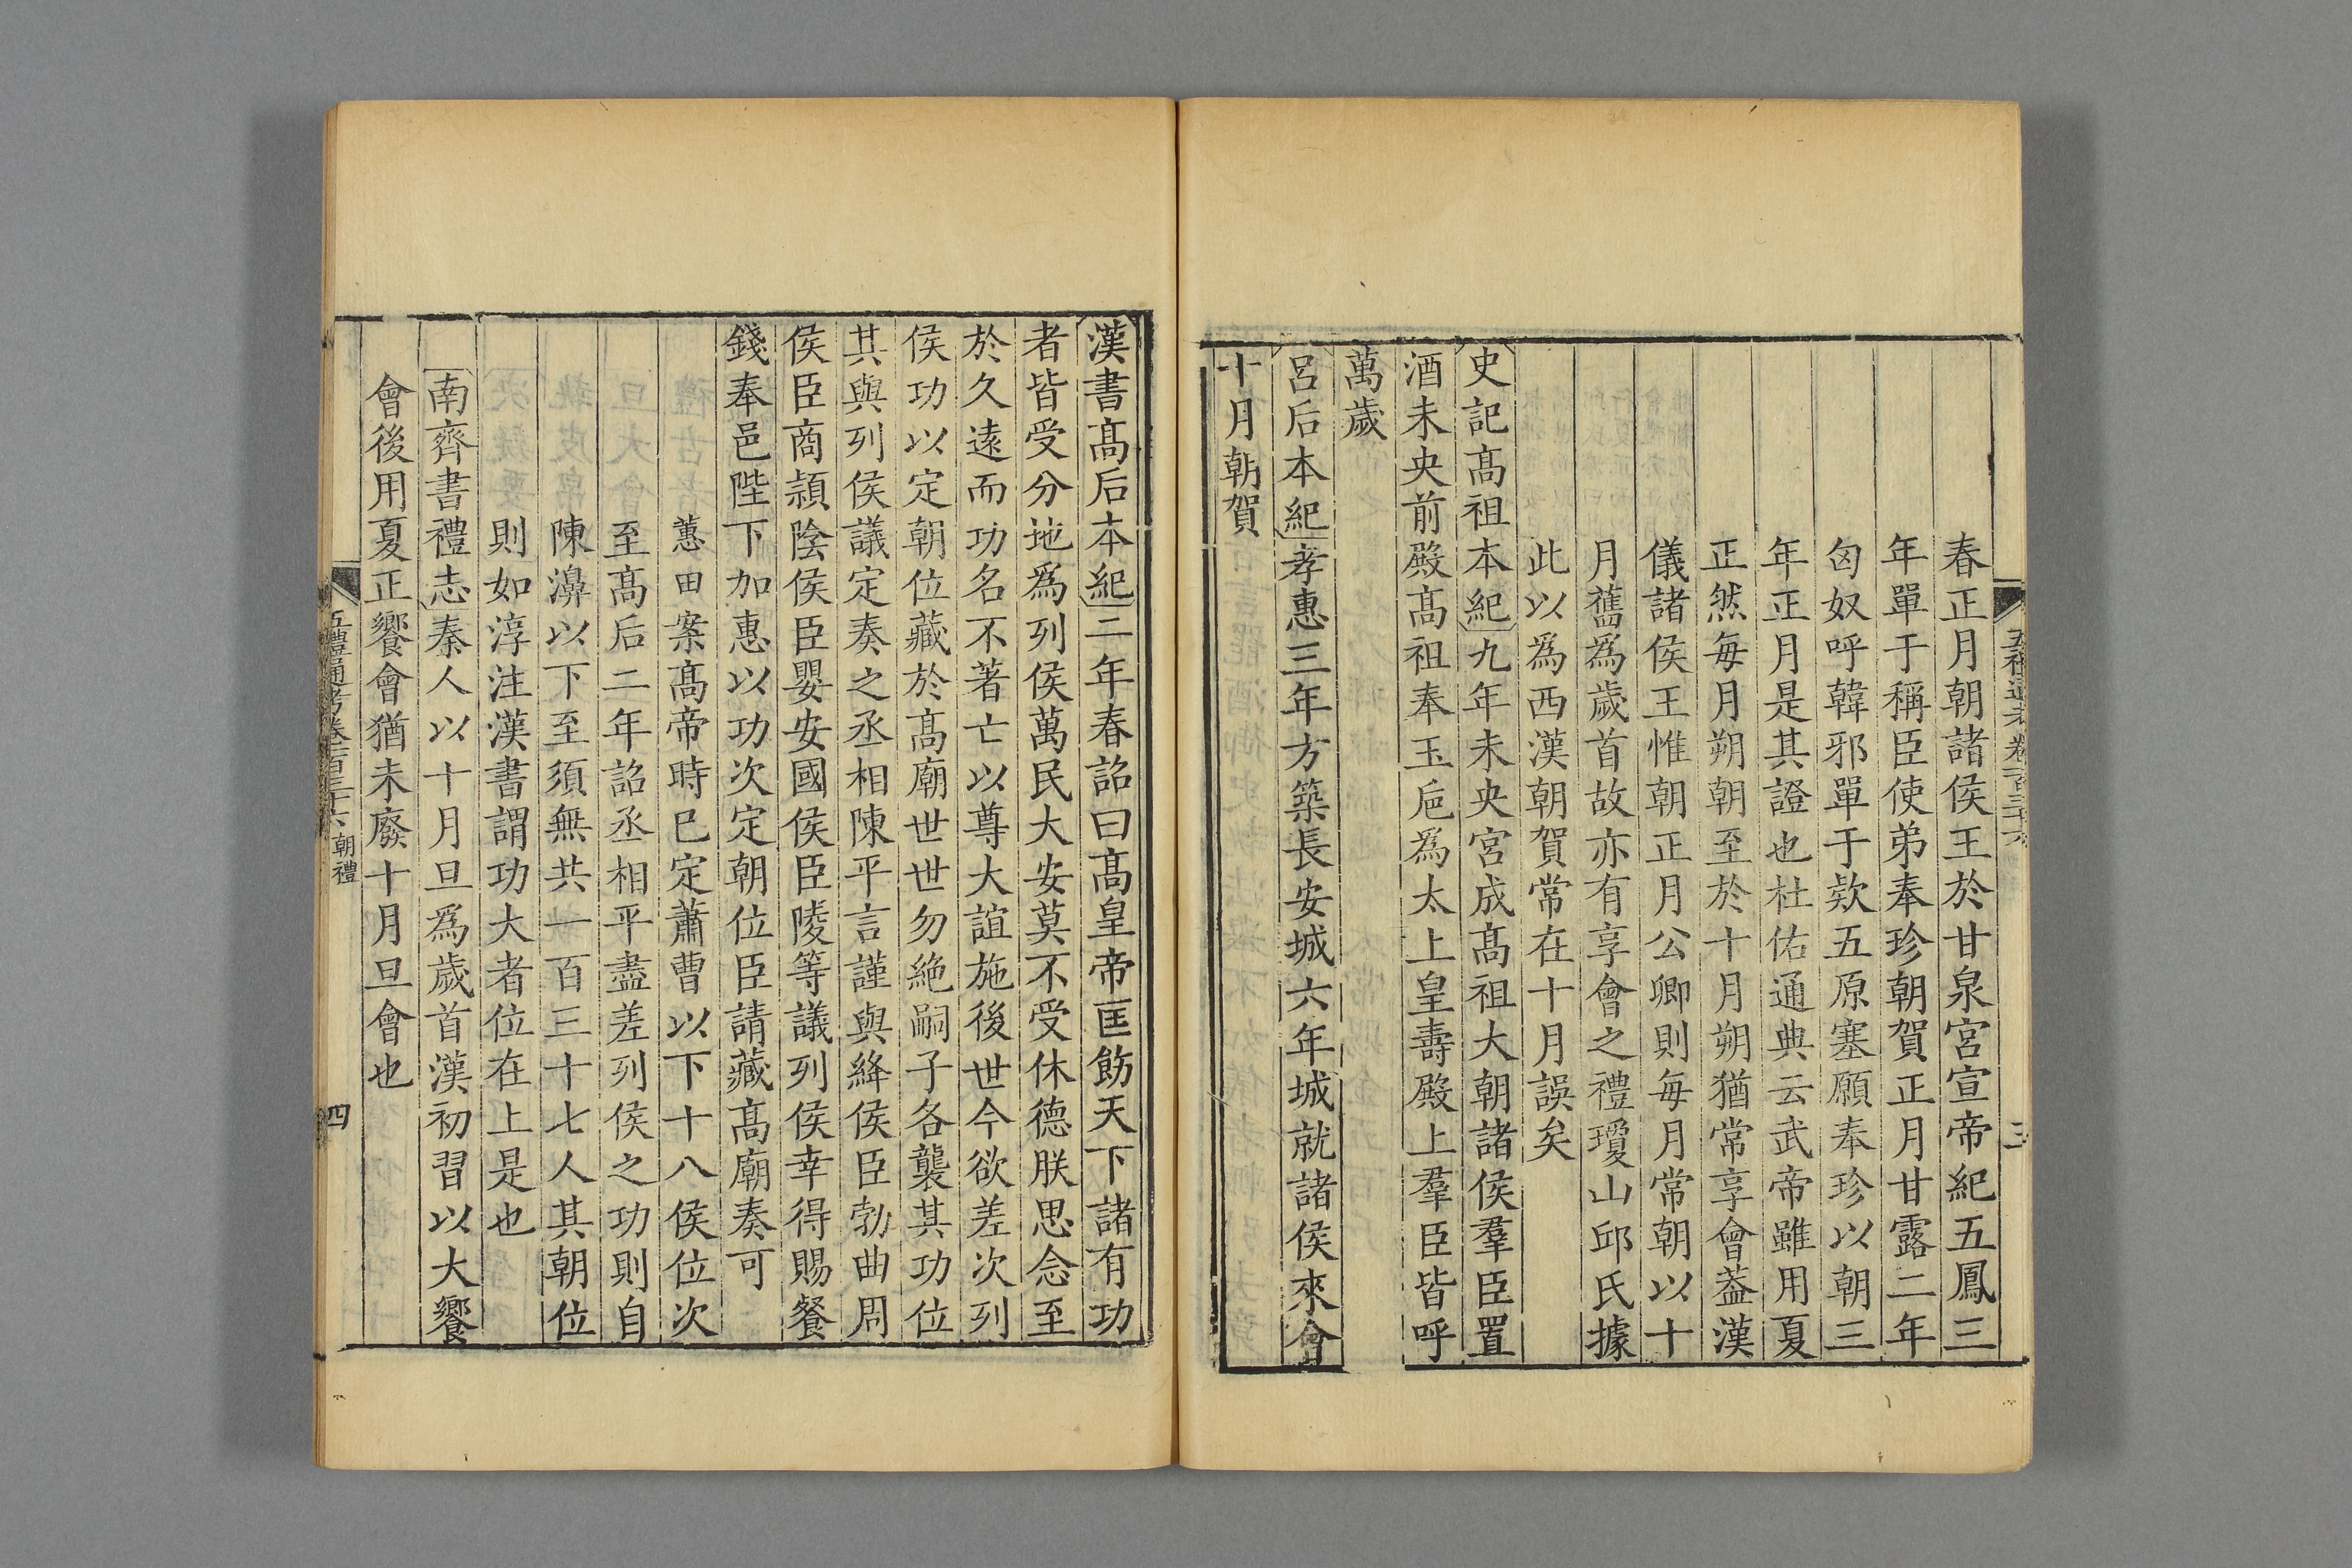 五禮通考卷一百三十六
三
春正月朝諸侯王於甘泉宮宣帝紀五鳳三
年單于稱臣使弟奉珍朝賀正月甘露二年
匈奴呼韓邪單于欵五原塞願奉珍以朝三
年正月是其證也杜佑通典云武帝雖用夏
正然每月朔朝至於十月朔猶常享會葢漢
儀諸侯王惟朝正月公卿則每月常朝以十
月舊爲歲首故亦有享會之禮瓊山邱氏據
此以爲西漢朝賀常在十月誤矣
史記髙祖本紀九年未央宮成髙祖大朝諸侯羣臣置
酒未央前殿髙祖奉玉巵爲太上皇壽殿上羣臣皆呼
萬歲
呂后本紀孝惠三年方築長安城六年城就諸侯來會
十月朝賀
漢書髙后本紀二年春詔曰髙皇帝匡飭天下諸有功
者皆受分地爲列侯萬民大安莫不受休德朕思念至
於久遠而功名不著亡以尊大誼施後世今欲差次列
侯功以定朝位藏於髙廟世世勿絶嗣子各襲其功位
其與列侯議定奏之丞相陳平言謹與絳侯臣勃曲周
侯臣商潁陰侯臣嬰安國侯臣陵等議列侯幸得賜餐
錢奉邑陛下加惠以功次定朝位臣請藏髙廟奏可
蕙田案髙帝時已定蕭曹以下十八侯位次
至髙后二年詔丞相平盡差列侯之功則自
陳濞以下至須無共一百三十七人其朝位
則如淳注漢書謂功大者位在上是也
南齊書禮志秦人以十月旦爲歲首漢初習以大饗
會後用夏正饗會猶未廢十月旦會也
五禮通考卷一百三十六 朝禮
四